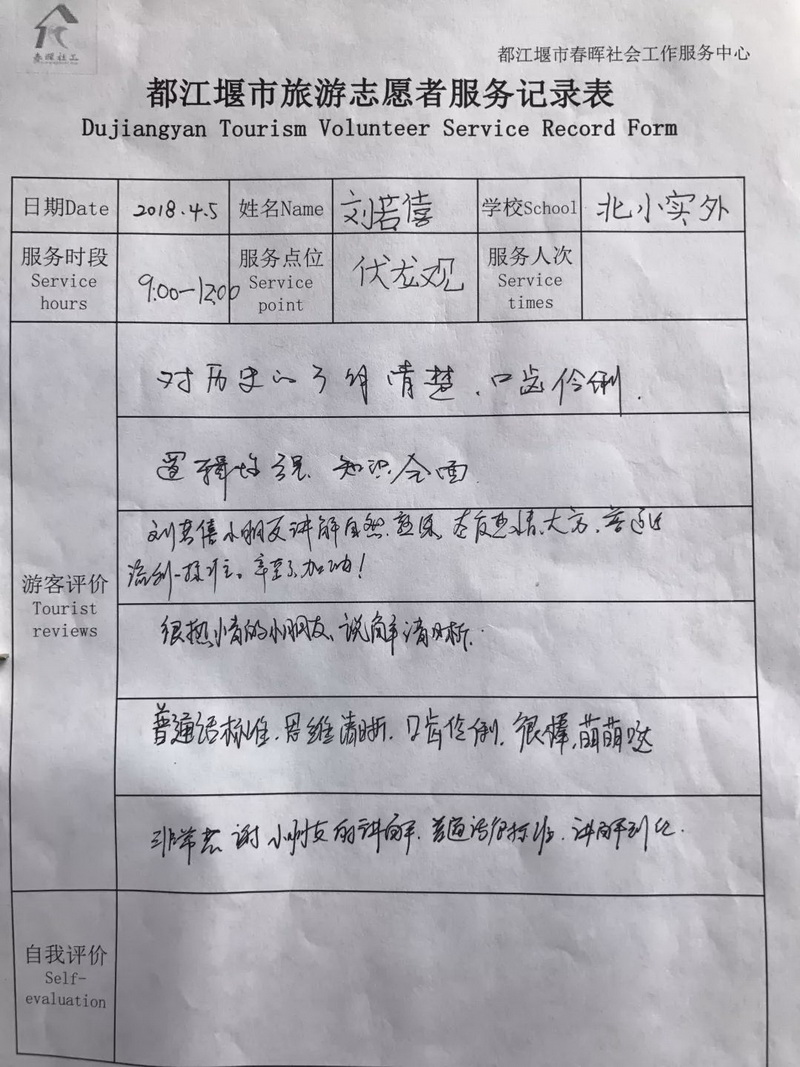 春晖社工
都江堰市春晖社会工作服务中心
都江堰市旅游志愿者服务记录表
Dujiangyan Tourism Volunteer Service Record Form
日期Date 2018.4.5 姓名Name 刘若僖 学校School 北小实外
服务时段 Service hours 9:00-12:00 服务点位 Service point 伏龙观 服务人次 Service times
对历史的了解清楚、口齿伶俐.
逻辑 知识全面
游客评价
Tourist
reviews
刘若僖小朋友讲解自然.熟练.态度热情.大方.普通话
流利标准。辛苦了,加油!
很热情的小朋友、说解清晰.
普通话标准.思维清晰.口齿伶俐.很棒,萌萌哒
非常感谢小朋友的讲解.普通话很标准.讲解到位.
自我评价
Self-
evaluation